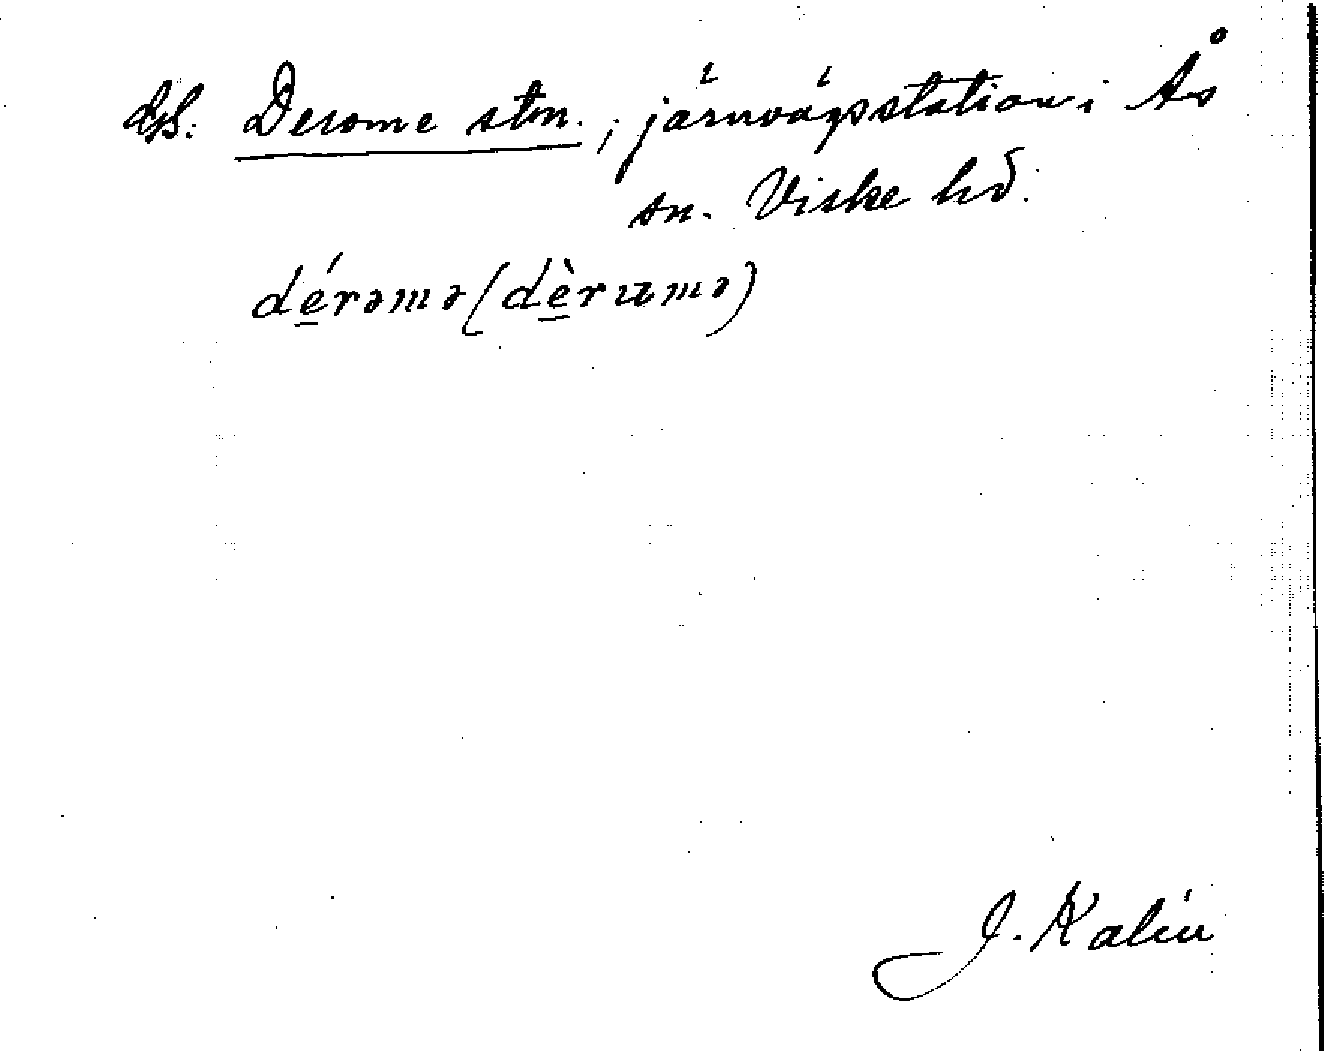 Derome stn., järnvägsstation i Ås
sn. Viske hd.
dérəmə (dèrumə)
J. Kalén